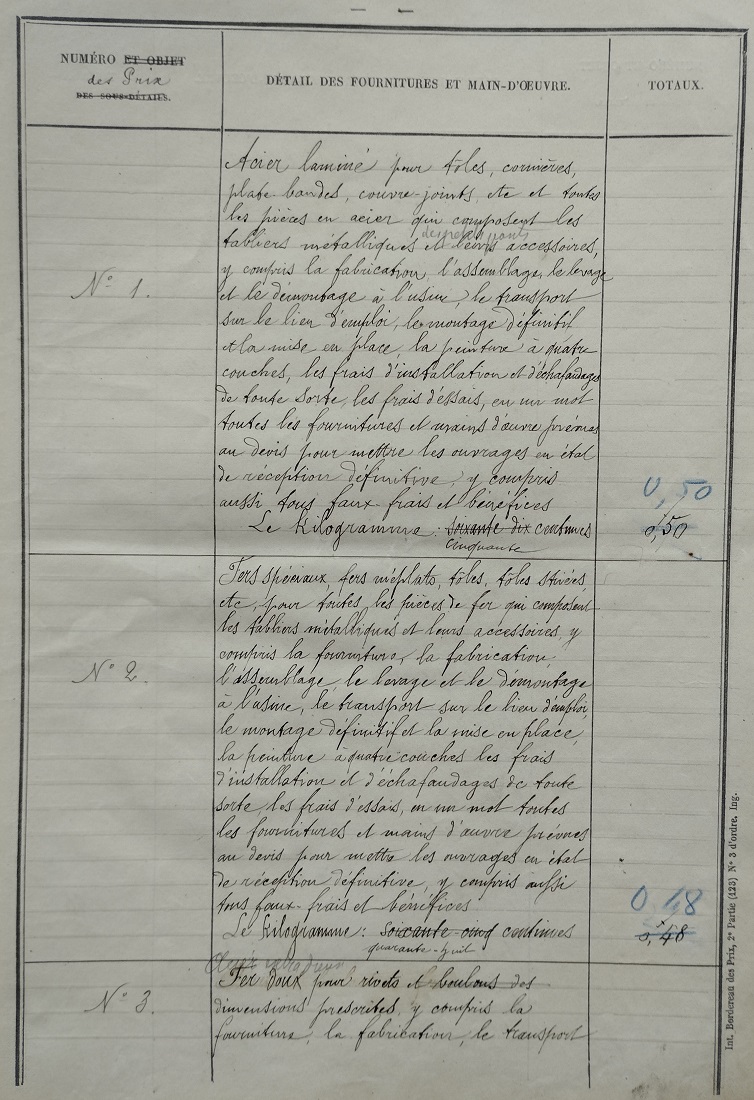 NUMÉRO ET OBJET
des Prix
DES SOUS-DÉTAILS.
DÉTAIL DES FOURNITURES ET MAIN-D'ŒUVRE.
TOTAUX.
Acier laminé pour tôles, cornières,
plate-bandes, couvre-joints, etc et toutes
les pièces en acier qui composent les
des petits ponts
tabliers métalliques et leurs accessoires,
N° 1.
y compris la fabrication, l'assemblage, le levage
et le démontage à l'usine, le transport
sur le lieu d'emploi, le montage définitif
et la mise en place, la peinture à quatre
couches, les frais d'installation et d'échafaudages
de toute sorte, les frais d'essais, en un mot
toutes les fournitures et mains d'œuvre prévues
au devis pour mettre les ouvrages en état
de réception définitive, y compris
aussi tous faux-frais et bénéfices
0,50
Le Kilogramme : soixante dix centimes
0,50
Cinquante
Fers spéciaux, fers méplats, tôles, tôles striées,
etc, pour toutes les pièces de fer qui composent
les tabliers métalliques et leurs accessoires, y
compris la fourniture, la fabrication,
N° 2.
l'assemblage, le levage et le démontage
à l'usine, le transport sur le lieu d'emploi,
le montage définitif et la mise en place,
la peinture à quatre couches les frais
d'installation et d'échafaudages de toute
sorte, les frais d'essais, en un mot toutes
les fournitures et mains d'œuvre prévues
au devis pour mettre les ouvrages en état
de réception définitive, y compris aussi
tous faux-frais et bénéfices
0,48
Le Kilogramme : soixante-cinq centimes
0,48
quarante-huit
Fer doux pour rivets et boulons des
N° 3.
dimensions prescrites, y compris la
fourniture, la fabrication, le transport
Int. Bordereau des Prix, 2e Partie (123) N° 3 d'ordre. Ing.